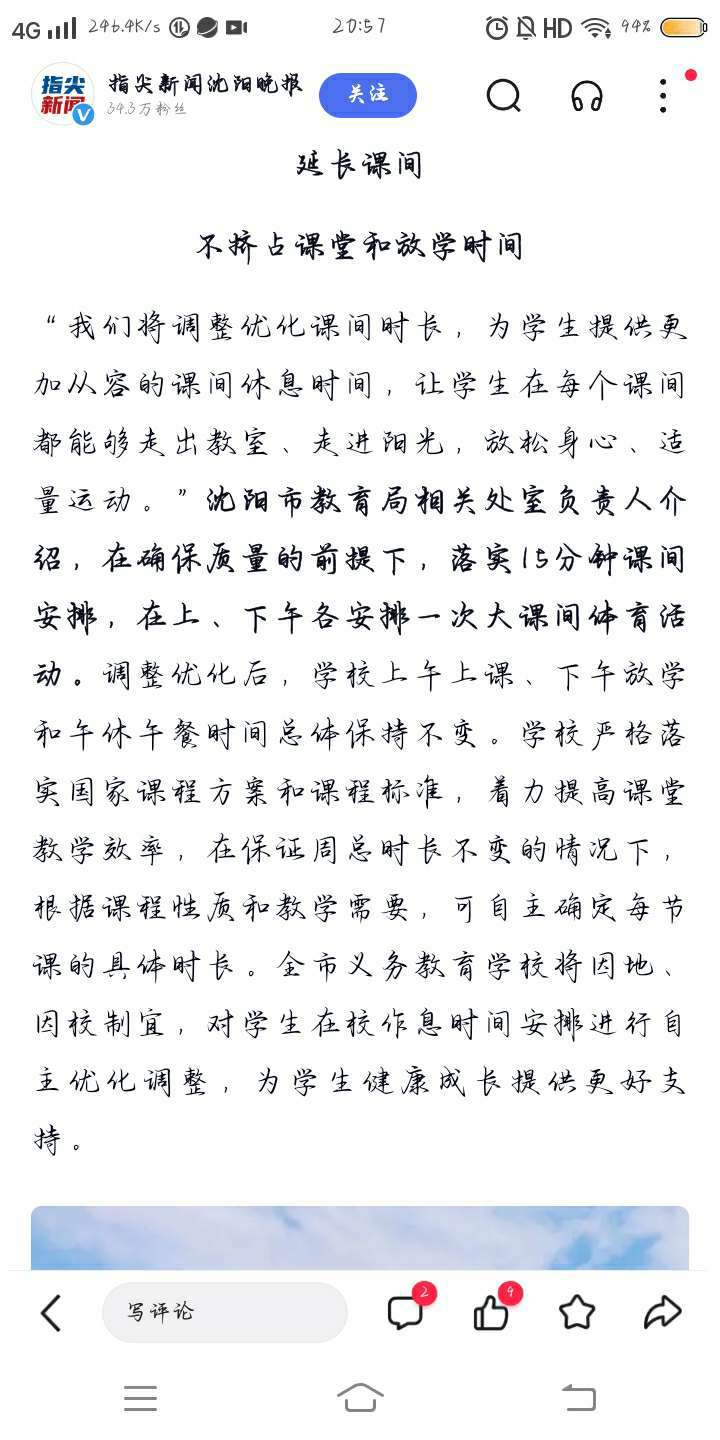 4G 246.4K/s 20:57 HD 94%
指尖新闻
指尖新闻沈阳晚报
34.3万粉丝
关注
延长课间
不挤占课堂和放学时间
“我们将调整优化课间时长，为学生提供更
加从容的课间休息时间，让学生在每个课间
都能够走出教室、走进阳光，放松身心、适
量运动。”沈阳市教育局相关处室负责人介
绍，在确保质量的前提下，落实15分钟课间
安排，在上、下午各安排一次大课间体育活
动。调整优化后，学校上午上课、下午放学
和午休午餐时间总体保持不变。学校严格落
实国家课程方案和课程标准，着力提高课堂
教学效率，在保证周总时长不变的情况下，
根据课程性质和教学需要，可自主确定每节
课的具体时长。全市义务教育学校将因地、
因校制宜，对学生在校作息时间安排进行自
主优化调整，为学生健康成长提供更好支
持。
写评论 2 9